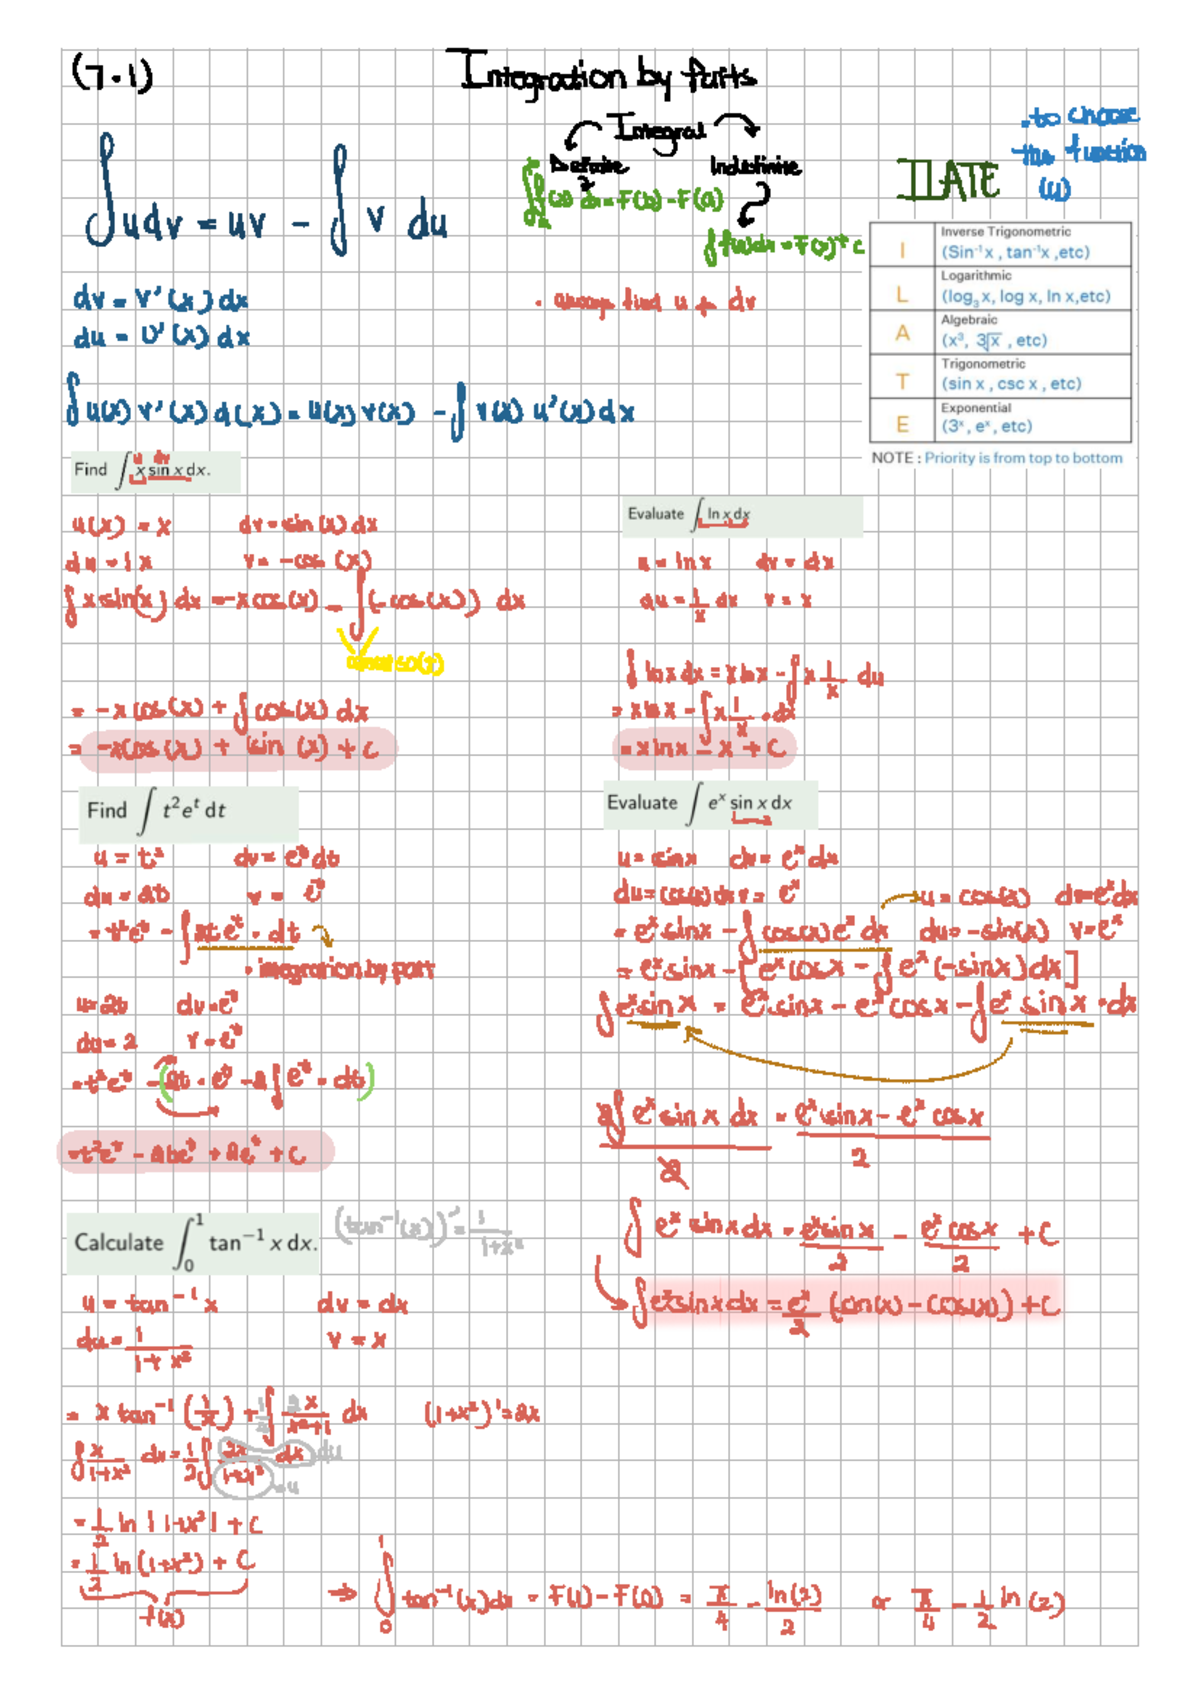 (7.1)
Integration by Parts
Integral
Definite
Indefinite
.to choose
the function
(u)
ILATE
∫udv = uv - ∫v du
∫f(x)dx=F(x)+c
I Inverse Trigonometric
(Sin⁻¹x , tan⁻¹x ,etc)
L Logarithmic
(log₃ x, log x, ln x,etc)
A Algebraic
(x³, 3√x , etc)
T Trigonometric
(sin x , csc x , etc)
E Exponential
(3ˣ, eˣ, etc)
NOTE : Priority is from top to bottom
dv = v'(x) dx
du = U'(x) dx
• always find u & dv
∫u(x) v'(x) d(x) = u(x) v(x) - ∫v(x) u'(x) dx
Find ∫ x sin x dx.
u dv
u(x) = x dv = sin(x) dx
v = -cos (x)
∫x sin(x) dx = -x cos(x) - ∫(-cos(x)) dx
= -x cos(x) + ∫cos(x) dx
= -xcos(x) + sin (x) + C
Evaluate ∫ ln x dx
u = lnx dv = dx
du = 1/x dx v = x
∫lnx dx = xlnx - ∫x 1/x du
= xlnx - ∫x 1/x · dx
= xlnx - x + C
Find ∫ t²eᵗ dt
u = t² dv = eᵗdt
du = 2t v = eᵗ
= t²eᵗ - ∫2teᵗ · dt
• integration by part
u=2t dv=eᵗ
du=2 v=eᵗ
=t²eᵗ -(2t · eᵗ - 2∫eᵗ · dt)
=t²eᵗ - 2teᵗ + 2eᵗ + C
Evaluate ∫ eˣ sin x dx
u= sinx dv= eˣ dx
du=cos(x)dx v= eˣ
u = cos(x) dv=eˣdx
= eˣsinx - ∫cos(x)eˣ dx du=-sin(x) v=eˣ
= eˣsinx - [eˣcosx - ∫eˣ(-sinx)dx]
∫eˣsinx = eˣsinx - eˣcosx - ∫eˣ sinx · dx
2∫eˣ sin x dx = eˣsinx - eˣ cosx
2 2
∫eˣ sinx dx = eˣsinx/2 - eˣcosx/2 + C
∫eˣsinx dx = eˣ/2 (sin(x) - cos(x)) + C
Calculate ∫₀¹ tan⁻¹ x dx.
(tan⁻¹(x))' = 1/1+x²
u = tan⁻¹x dv = dx
du = 1/1+x² v = x
= x tan⁻¹(1/x) + ∫ x/x²+1 dx (1+x²)'=2x
∫x/1+x² dx = 1/2∫2x/1+x² dx du
=u
= 1/2 ln|1+x²| + C
= 1/2 ln(1+x²) + C
f(x)
⇒ ∫₀¹ tan⁻¹(x)dx = F(1) - F(0) = π/4 - ln(2)/2 or π/4 - 1/2 ln(2)